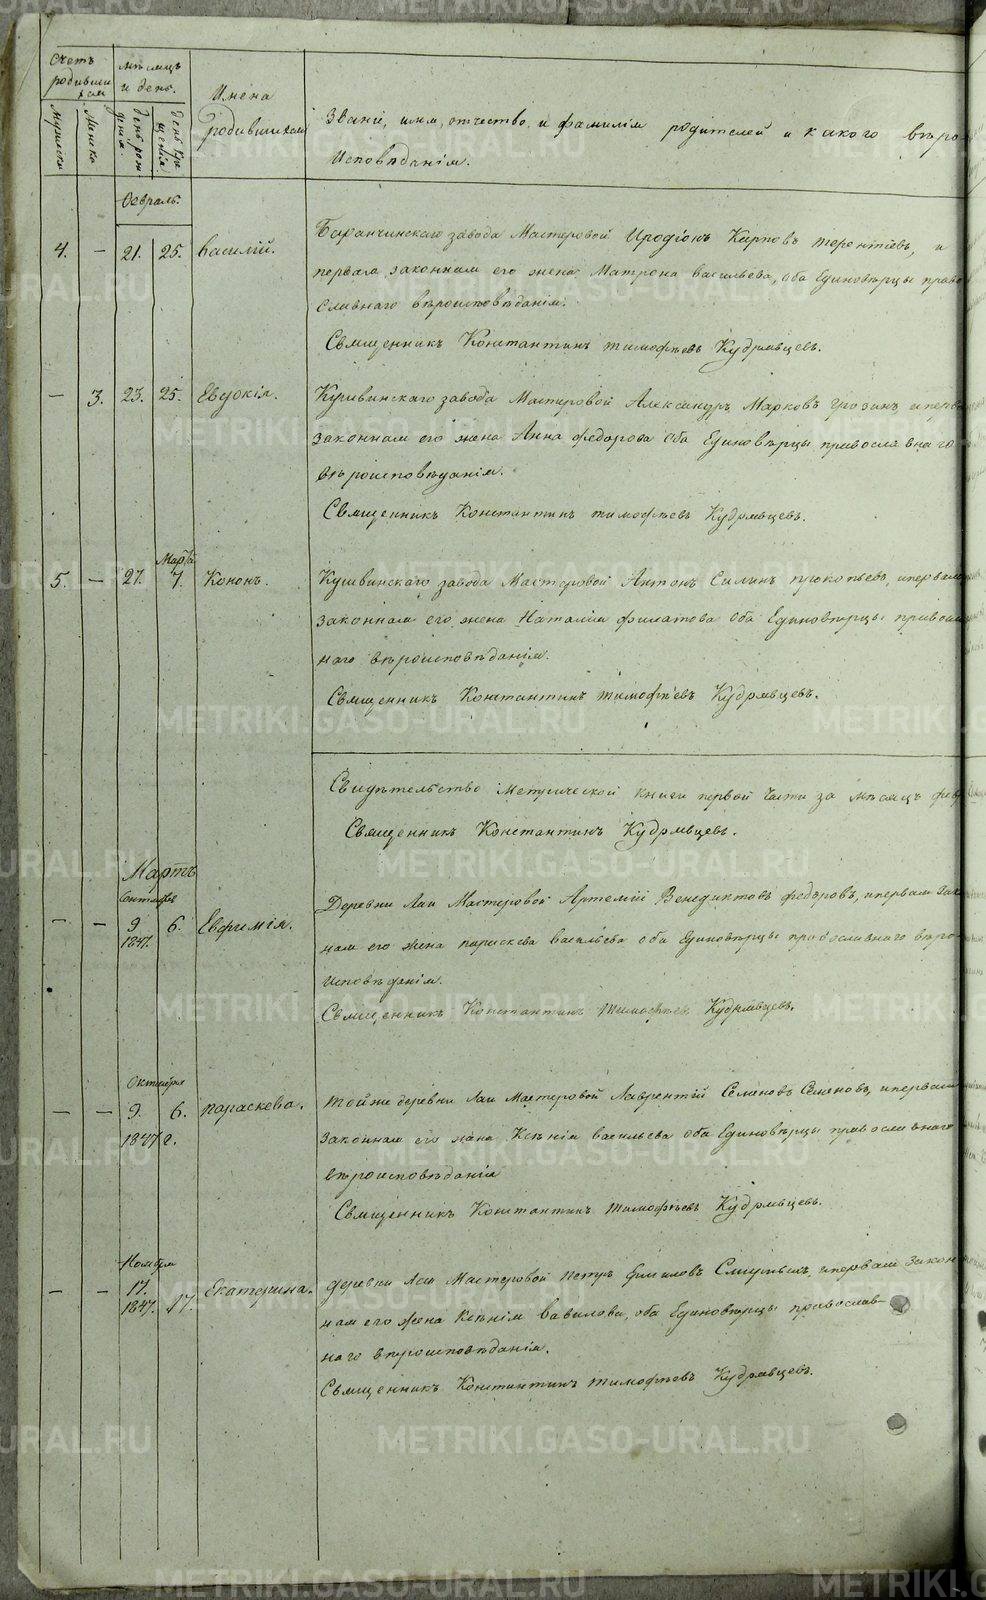 Счетъ родившихся
Мѣсяцъ и день.
Имена родившихся
Званіе, имя, отчество, и фамилія родителей и какого вѣро-
исповѣданія.
Мужеска
Женска
день рож
денія.
день кре
щенія
Февраль.
4. — 21. 25. Василій.
Баранчинскаго завода Мастеровой Иродіонъ Карповъ терентіевъ, и
первая законная его жена Матрона васильева, оба Единовѣрцы право
славнаго вѣроисповѣданія.
Священникъ Константинъ тимофѣевъ Кудрявцевъ.
— 3. 23. 25. Евдокія.
Кушвинскаго завода Мастеровой Александръ Марковъ Грозинъ и перв
законная его жена Анна федорова оба Единовѣрцы православнаго
вѣроисповѣданія.
Священникъ Константинъ тимофѣевъ Кудрявцевъ.
Марта
5. — 27. 7. Кононъ.
Кушвинскаго завода Мастеровой Антонъ Силинъ прокопьевъ, и первая
законная его жена Наталія филатова оба Единовѣрцы правосла
наго вѣроисповѣданія.
Священникъ Константинъ тимофѣевъ Кудрявцевъ.
Свидѣтельство Метрической книги первой части за мѣсяцъ фев
Священникъ Константинъ Кудрявцевъ.
Мартъ
Сентября
— — 9 6. Евфимія.
1847.
Деревни Лаи Мастеровой Артемій Венедиктовъ федоровъ, и первая зак
ная его жена параскева васильева оба Единовѣрцы православнаго вѣро-
исповѣданія.
Священникъ Константинъ тимофѣевъ Кудрявцевъ.
Октября
— — 9. 6. параскева.
1847 г.
той же деревни Лаи Мастеровой Лаврентій Семеновъ Семеновъ, и первая
законная его жена Ксенія васильева оба Единовѣрцы православнаго
вѣроисповѣданія
Священникъ Константинъ тимофѣевъ Кудрявцевъ.
Ноября
— — 17. 17. Екатерина.
1847.
деревни Лаи Мастеровой петръ и первая закон
ная его жена Ксенія вавилова, оба Единовѣрцы православ-
наго вѣроисповѣданія.
Священникъ Константинъ тимофѣевъ Кудрявцевъ.
METRIKI.GASO-URAL.RU